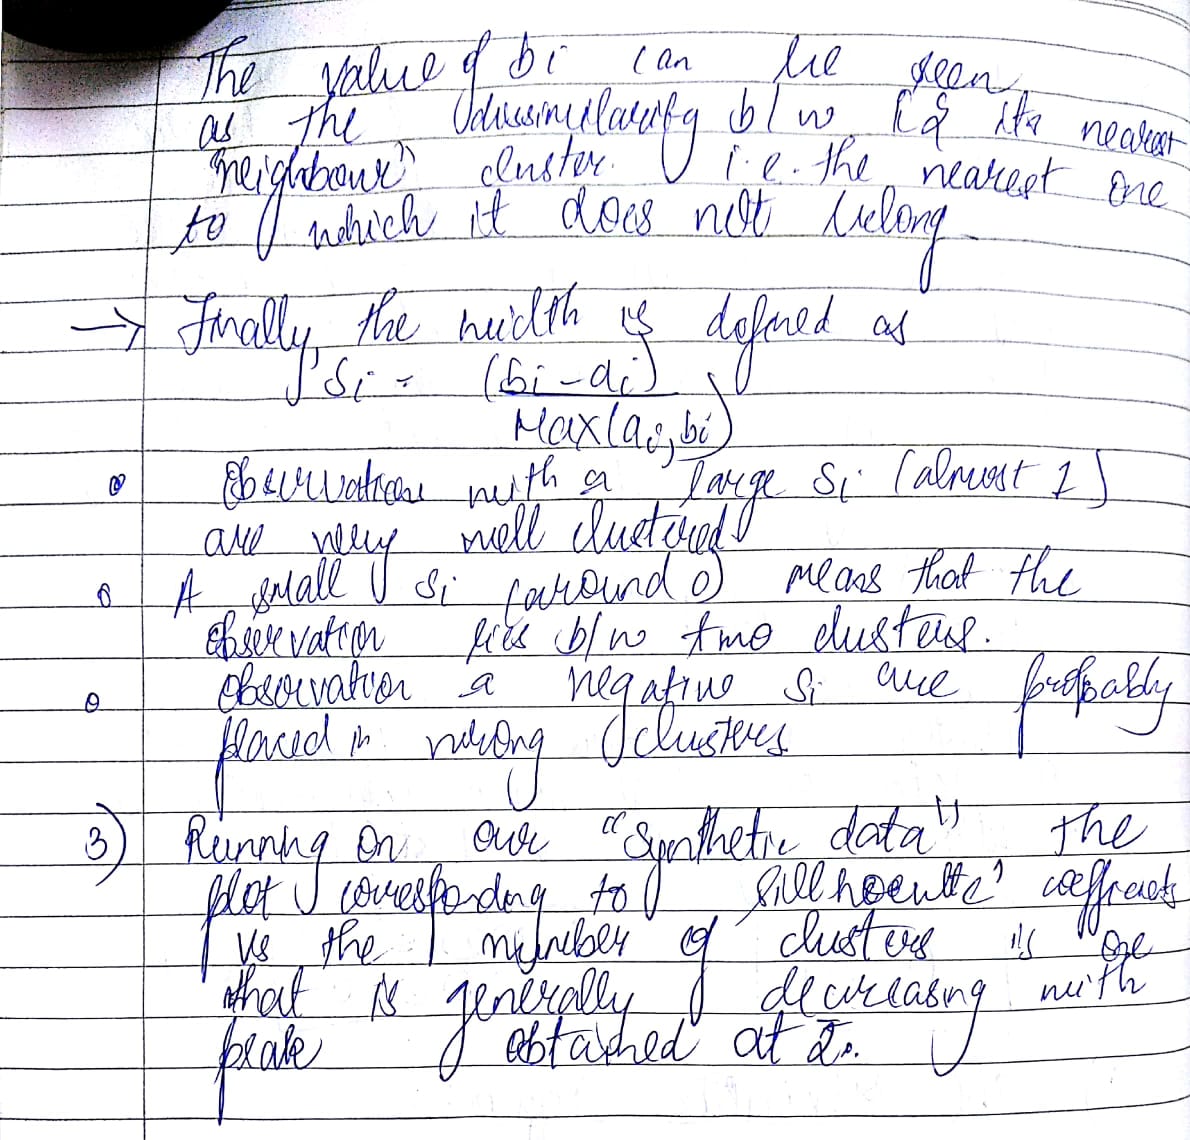 The value of bi can be seen
as the dissimilarity b/w i & its nearest
"neighbour" cluster. i.e. the nearest one
to which it does not belong
→ Finally, the width is defined as
Si = (bi - ai)
Max(ai, bi)
Observations with a large Si (almost 1)
are very well clustered
A small Si (around 0) means that the
observation lies b/w two clusters.
Observation a negative Si are probably
placed in wrong clusters
3) Running on our "Synthetic data" the
plot corresponding to Sillhoeutte' coefficients
vs the number of clusters is one
that is generally decreasing with
peak obtained at 2.